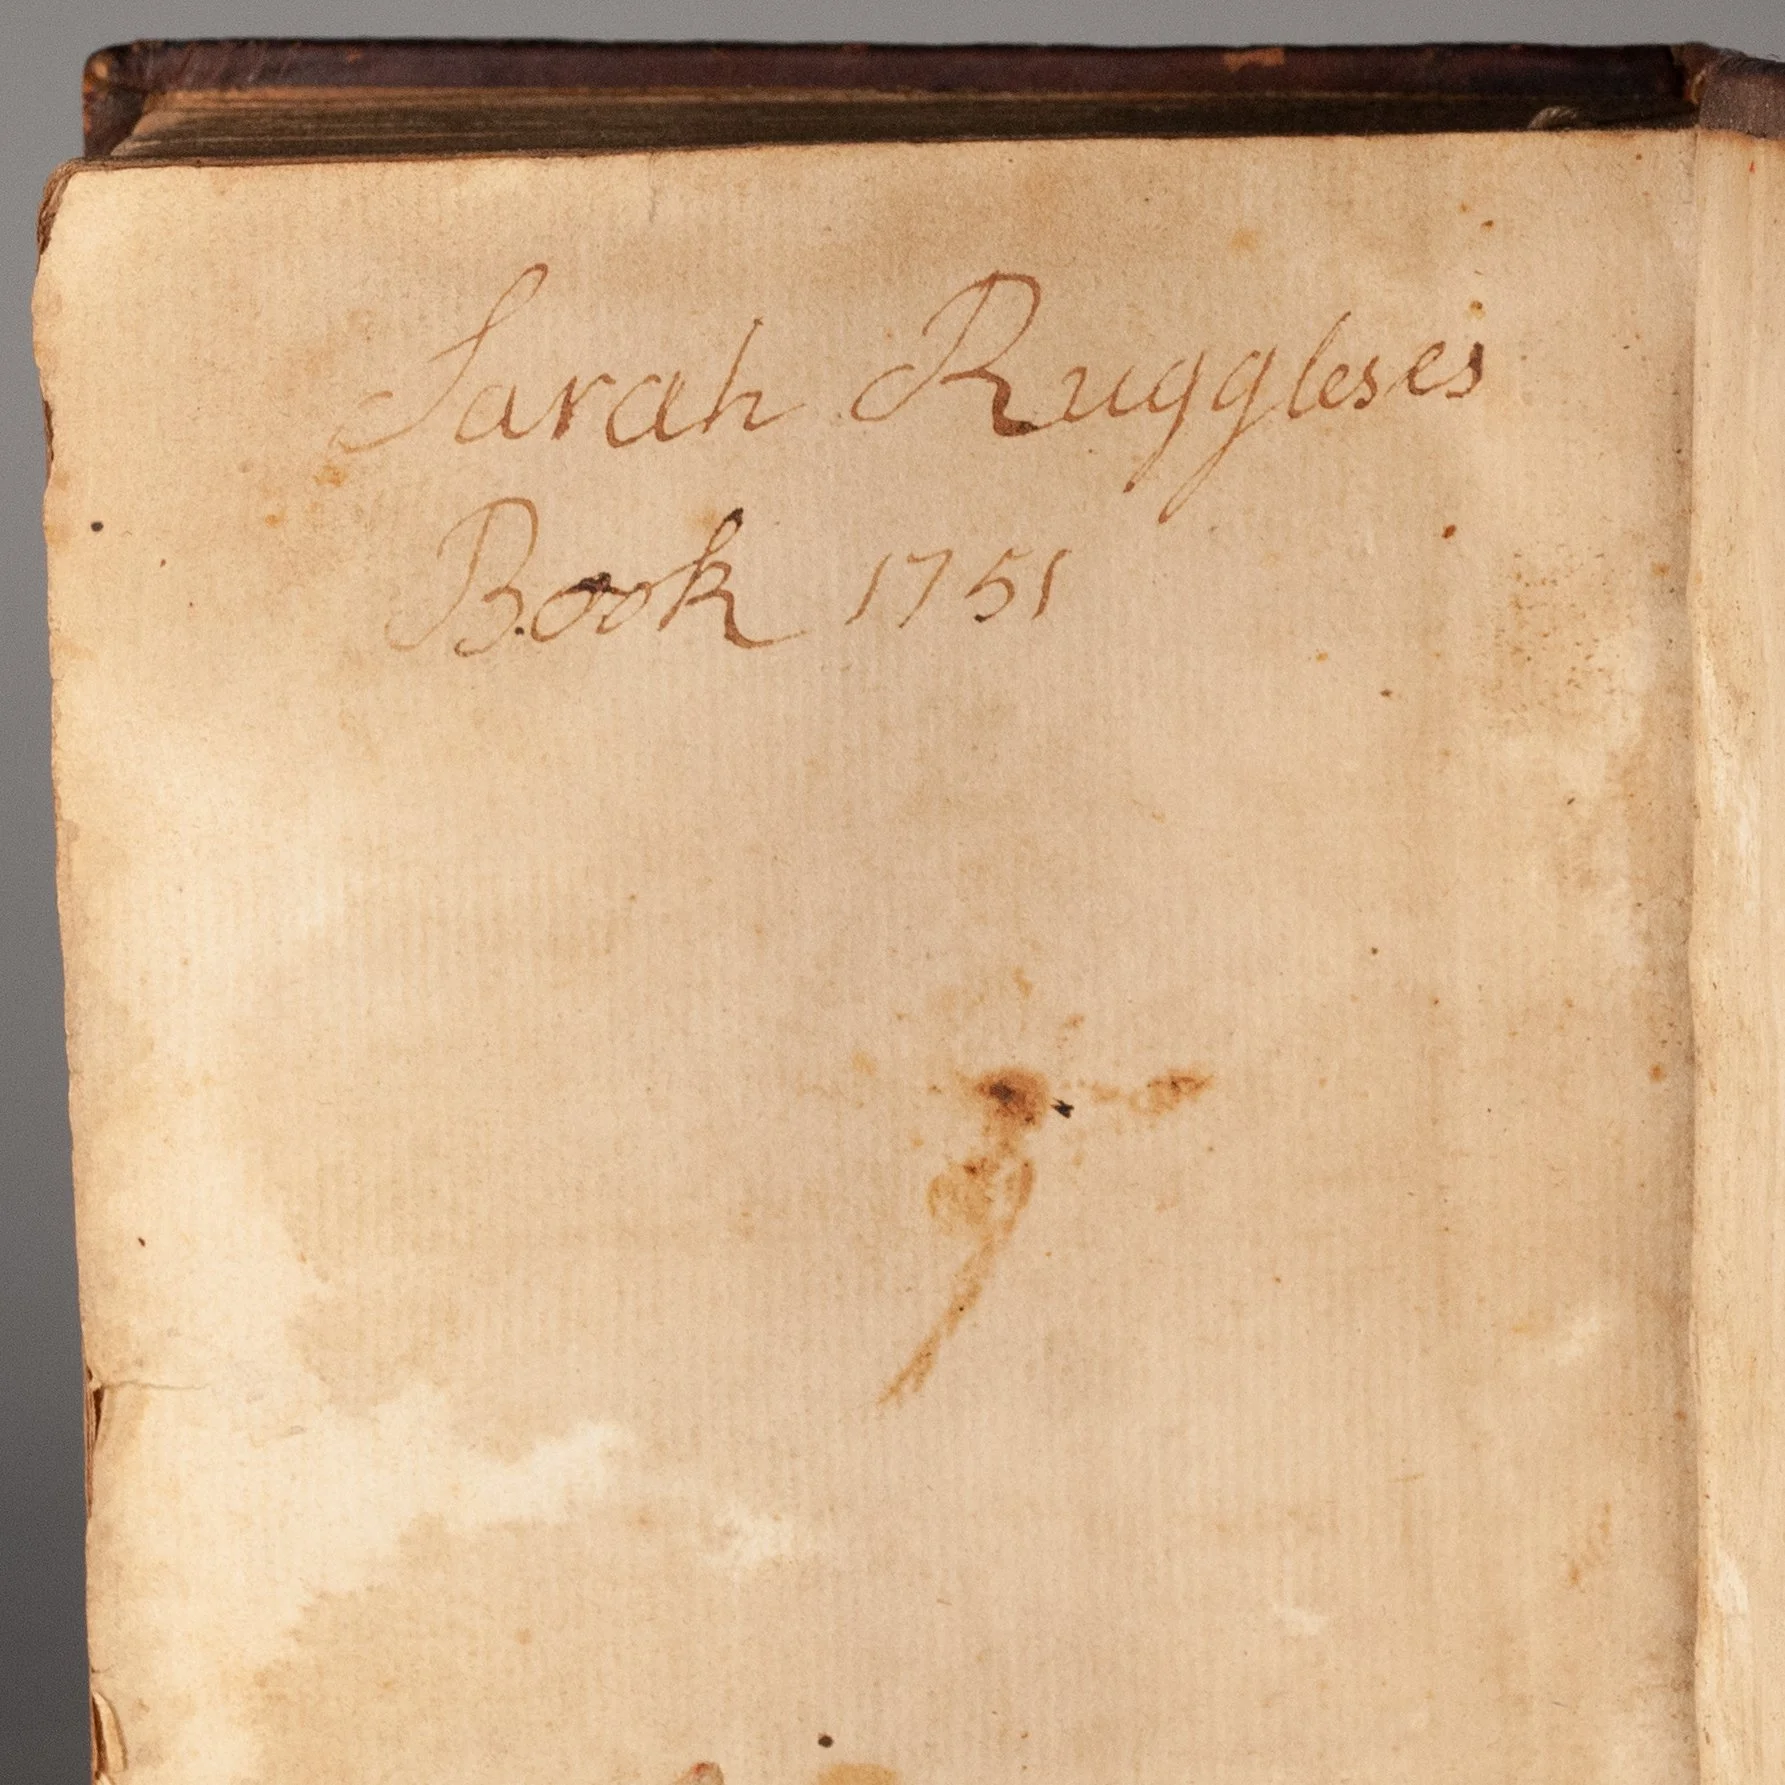 Sarah Ruggleses
Book 1751